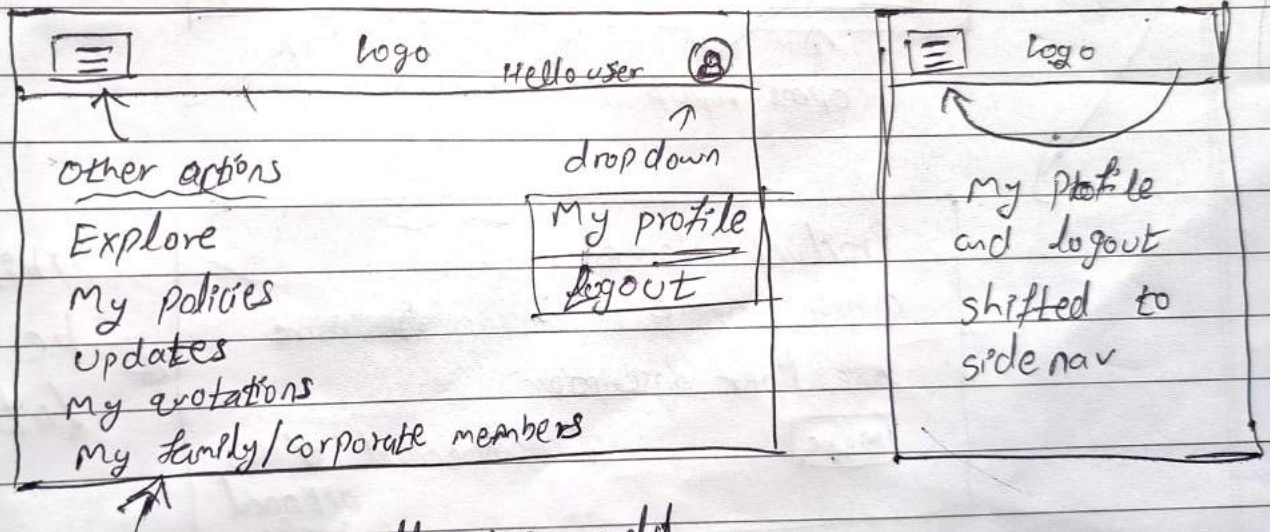 Logo
Hello user
other actions
Explore
My policies
updates
My quotations
My family/corporate members
dropdown
My profile
logout
logo
My Profile
and logout
shifted to
sidenav